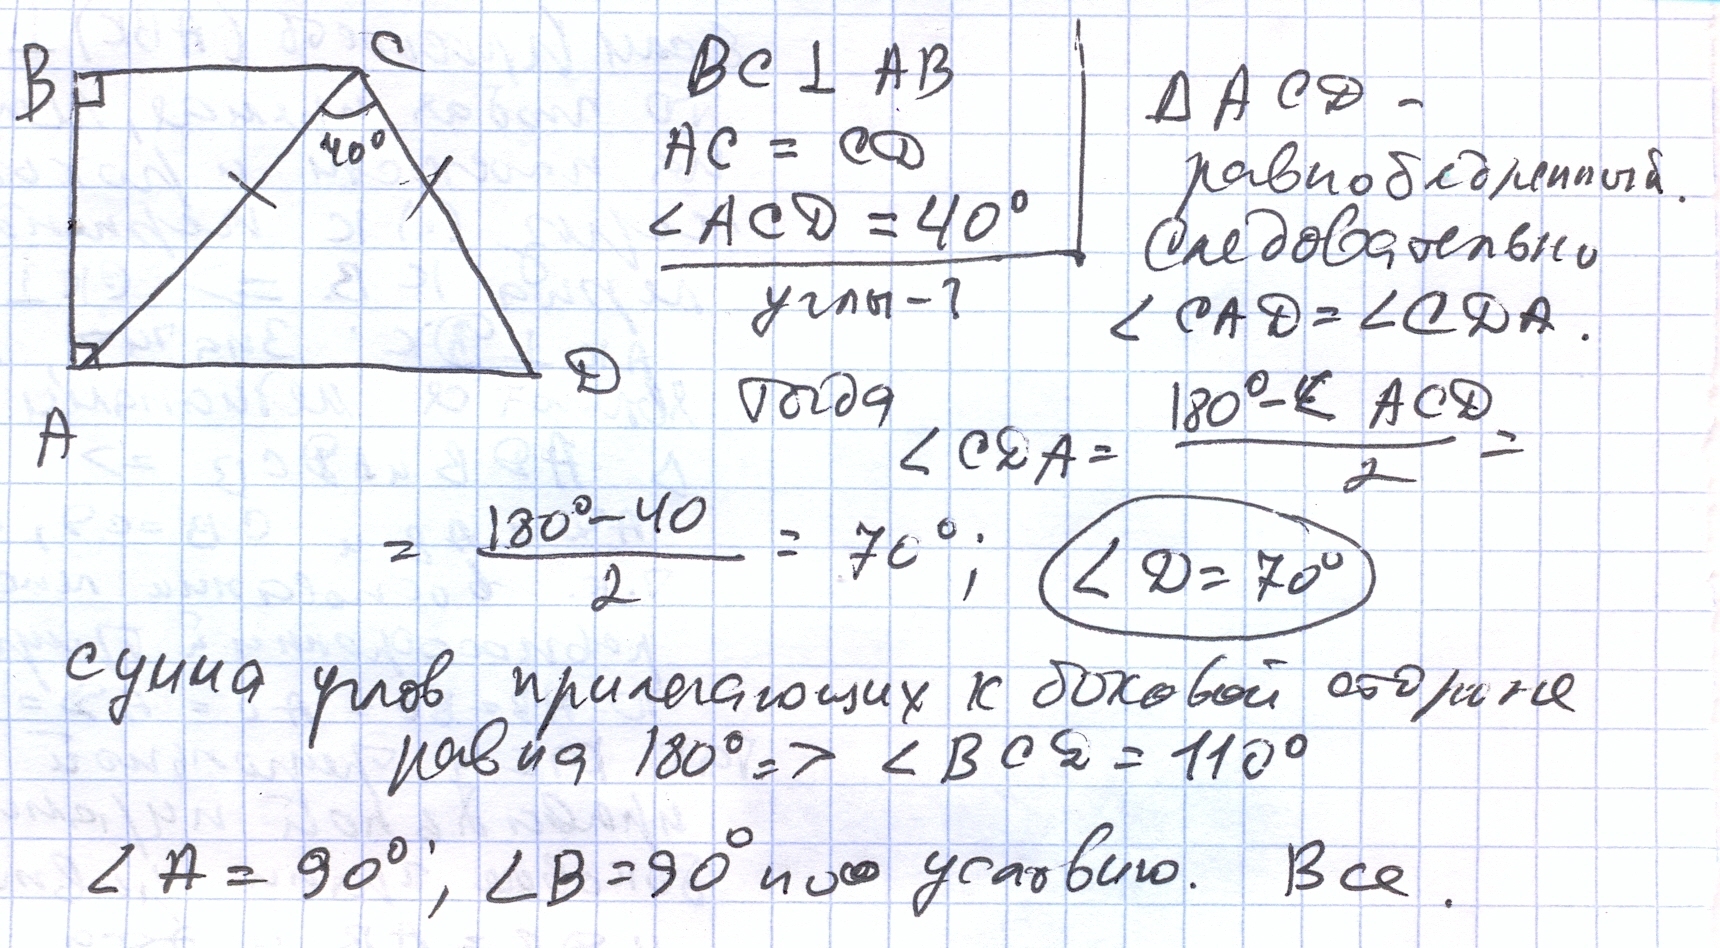 B C
40°
A D
BC ⊥ AB
AC = CD
∠ACD = 40°
углы - ?
Δ ACD -
равнобедренный.
Следовательно
∠CAD = ∠CDA.
Тогда
∠CDA = (180° - ∠ACD)/2 =
= (180° - 40)/2 = 70°; ∠D = 70°
сумма углов прилегающих к боковой стороне
равна 180° => ∠BCD = 110°
∠A = 90°; ∠B = 90° по условию. Все.